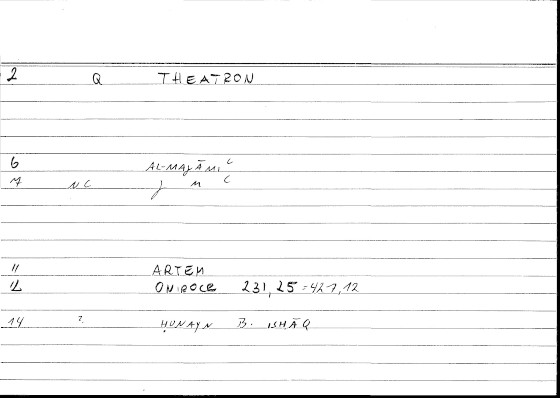 2 Q THEATRON
6 AL-MAJĀMIʿ
7 NC j m ʿ
11 ARTEM
12 ONIROCR 231,25 = 427,12
14 2 ḤUNAYN B. ISḤĀQ